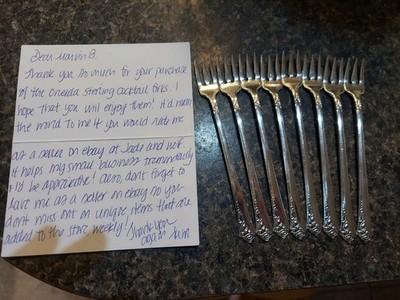 Dear Marvin B.
Thank you so much for your purchase
of the oneida sterling cocktail forks. I
hope that you will enjoy them! It'd mean
the world to me if you would rate me
as a seller on ebay at Jads and
It helps my small business tremendously
+ I'd be appreciative! Also, don't forget to
save me as a seller on ebay so you
dont miss out on unique items that are
added to the store weekly! Thank you
again